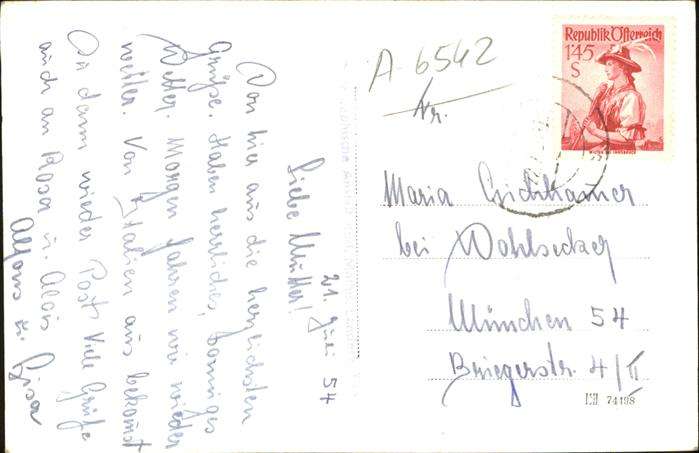 21. Juli 54
Liebe Mutter!
Von hier aus die herzlichsten
Grüße. Haben herrliches, sonniges
Wetter. Morgen fahren wir wieder
weiter. Von Italien aus bekomst
Du dann wieder Post Viele Grüße
auch an Rosa u. Alois
Alfons u. Gisa
A-6542
Nr.
Republik Österreich
1'45
S
Maria
bei
München 54
4/II
74198